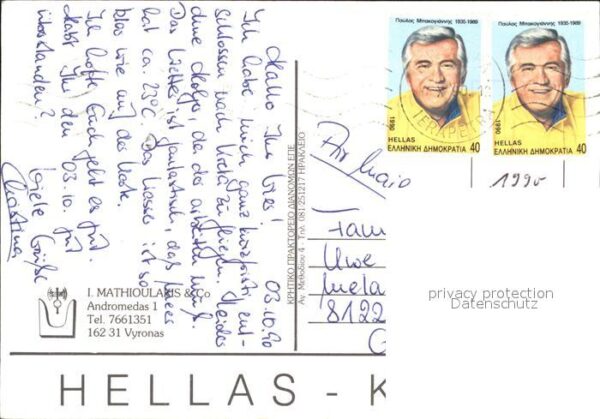 03.10.90
Hallo Ihr Zwei!
Ich habe mich ganz kurzfristig ent-
schlossen nach Kreta zu fliegen. Leider
ohne Kolja, da der arbeiten muß.
Das Wetter ist fantastisch, das Meer
hat ca. 23°C. Das Wasser ist so
blau wie auf der Karte.
Ich hoffe, Euch geht es gut.
Habt Ihr den 03.10. gut
überstanden?
Viele Grüße
Christina
ΚΡΗΤΙΚΟ ΠΡΑΚΤΟΡΕΙΟ ΔΙΑΝΟΜΩΝ ΕΠΕ
Αν. Μεθοδίου 4 - Τηλ. 081-251217 ΗΡΑΚΛΕΙΟ
I. MATHIOULAKIS & Co
Andromedas 1
Tel. 7661351
162 31 Vyronas
HELLAS - K
Παύλος Μπακογιάννης 1935-1989
1990
HELLAS
ΕΛΛΗΝΙΚΗ ΔΗΜΟΚΡΑΤΙΑ 40
Παύλος Μπακογιάννης 1935-1989
1990
HELLAS
ΕΛΛΗΝΙΚΗ ΔΗΜΟΚΡΑΤΙΑ 40
1990
Fam
Uwe
8122
privacy protection
Datenschutz